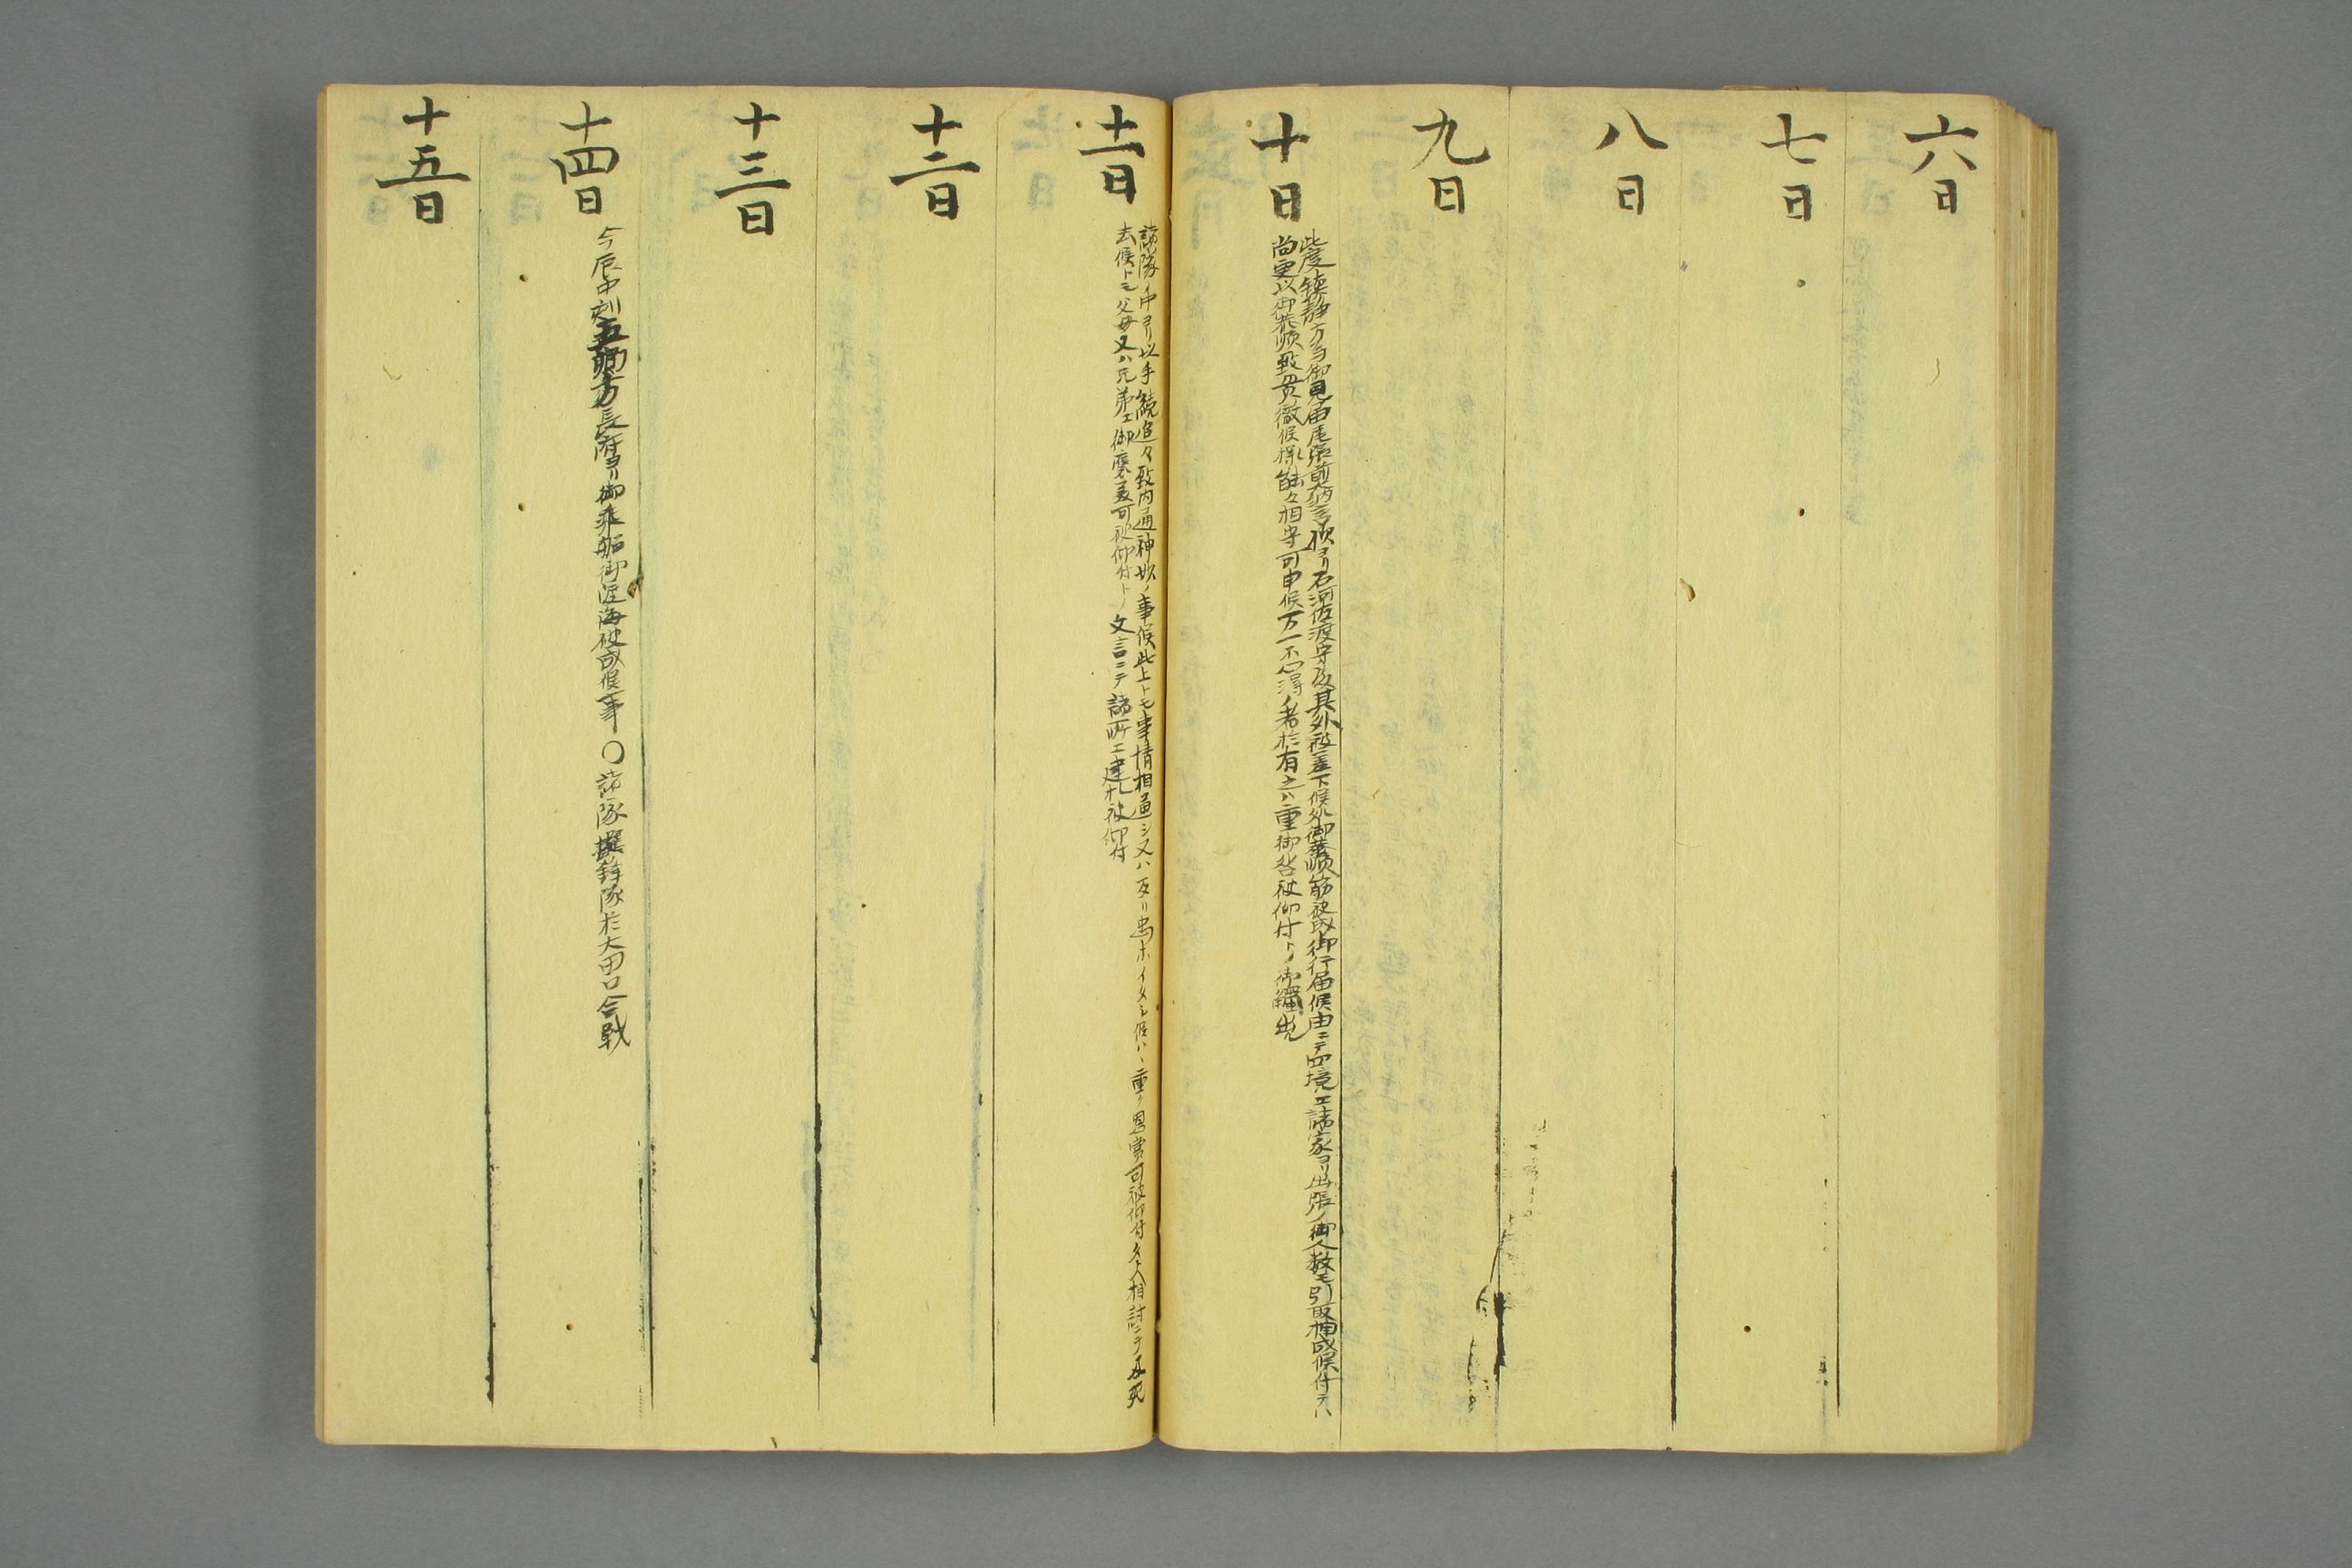 六日
七日
八日
九日
十日
此度鎮静方為御見届尾張前大納言様ヨリ石河佐渡守及其外被差下候処御恭順筋被成御行届候由ニテ四境エ諸家ヨリ出張ノ御人数モ引取相成候付テハ
尚更以御恭順致貫徹候様能々相守可申候万一不心得ノ者於有之ハ重御咎被仰付トノ御触出
十一日
諸隊ノ中ヨリ以手続追々致内通神妙ノ事候此上トモ事情相通シ又ハ反リ忠ホイタシ候ハヽ重ク恩賞可被仰付多人相討ニテ
去候トモ父母又ハ兄弟エ御褒美可被仰付トノ文言ニテ諸所エ建札被仰付
十二日
十三日
十四日
今辰中刻五卿方長府ヨリ御乗船御渡海被成候事〇諸隊撰鋒隊於大田口合戦
十五日